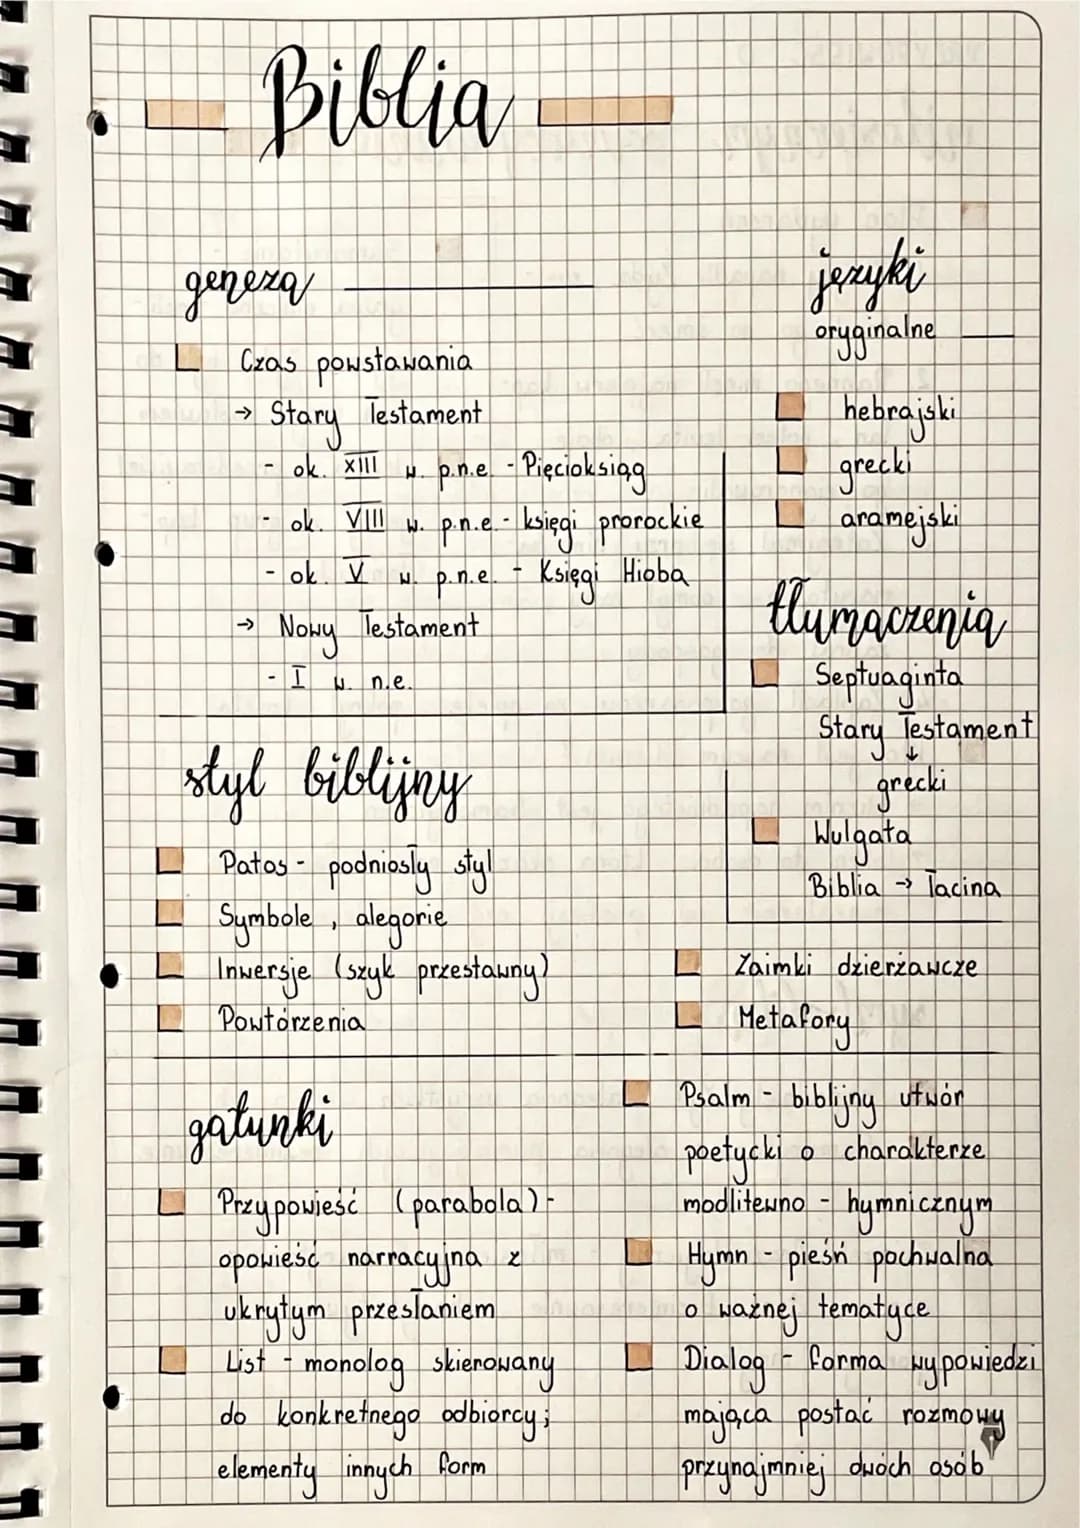 Biblia
geneza
Czas powstawania
→ Stary Testament
- ok. XIII w. p.n.e. - Pięcioksiąg
- ok. VIII w. p.n.e. - księgi prorockie
- ok. V w. p.n.e. - Księgi Hioba
→ Nowy Testament
- I w. n.e.
języki
oryginalne
hebrajski
grecki
aramejski
tłumaczenia
Septuaginta
Stary Testament
↓
grecki
Wulgata
Biblia → łacina
styl biblijny
Patos - podniosły styl
Symbole, alegorie
Inwersje (szyk przestawny)
Powtórzenia
Zaimki dzierżawcze
Metafory
gatunki
Przypowieść (parabola) -
opowieść narracyjna z
ukrytym przesłaniem
List - monolog skierowany
do konkretnego odbiorcy;
elementy innych form
Psalm - biblijny utwór
poetycki o charakterze
modlitewno - hymnicznym
Hymn - pieśń pochwalna
o ważnej tematyce
Dialog - forma wypowiedzi
mająca postać rozmowy
przynajmniej dwóch osób